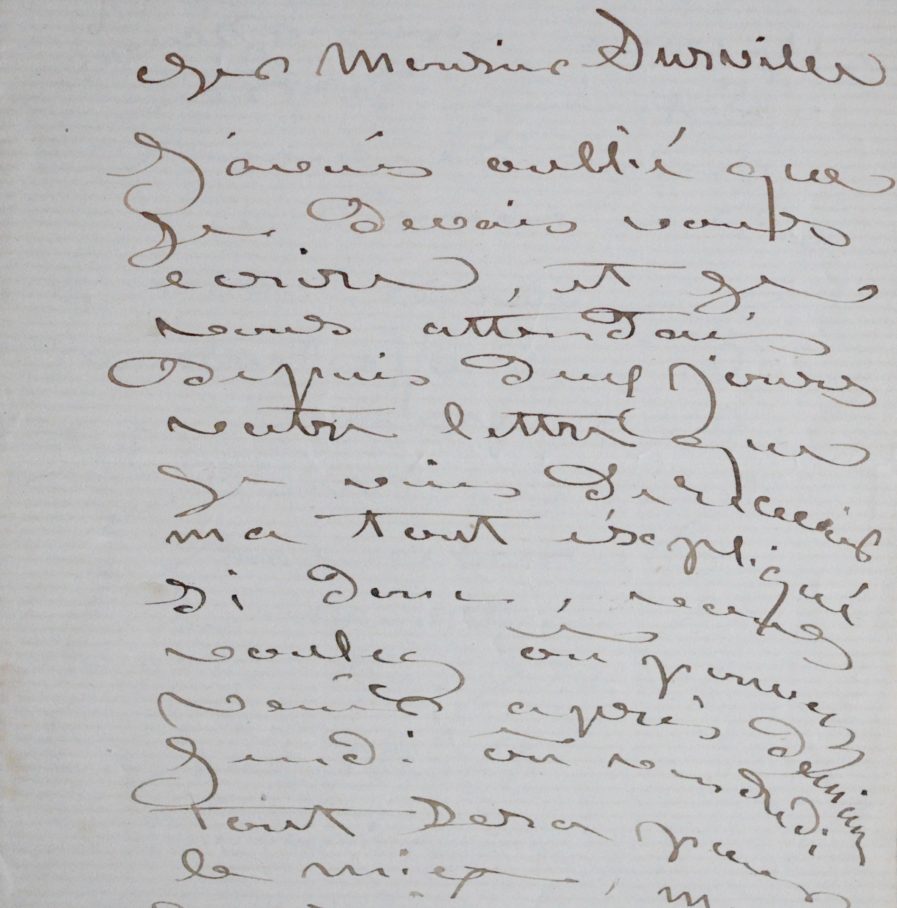 cher Monsieur Durville
J'avais oublié que
Je devais vous
ecrire, et Je
vous attendais
depuis deux jours
votre lettre que
Je viens de recevoir
ma tout éxpliqué
Si donc, vous
voulez ou pouvez
venir après demain
Jeudi ou vendredi
tout sera pour
le miex,